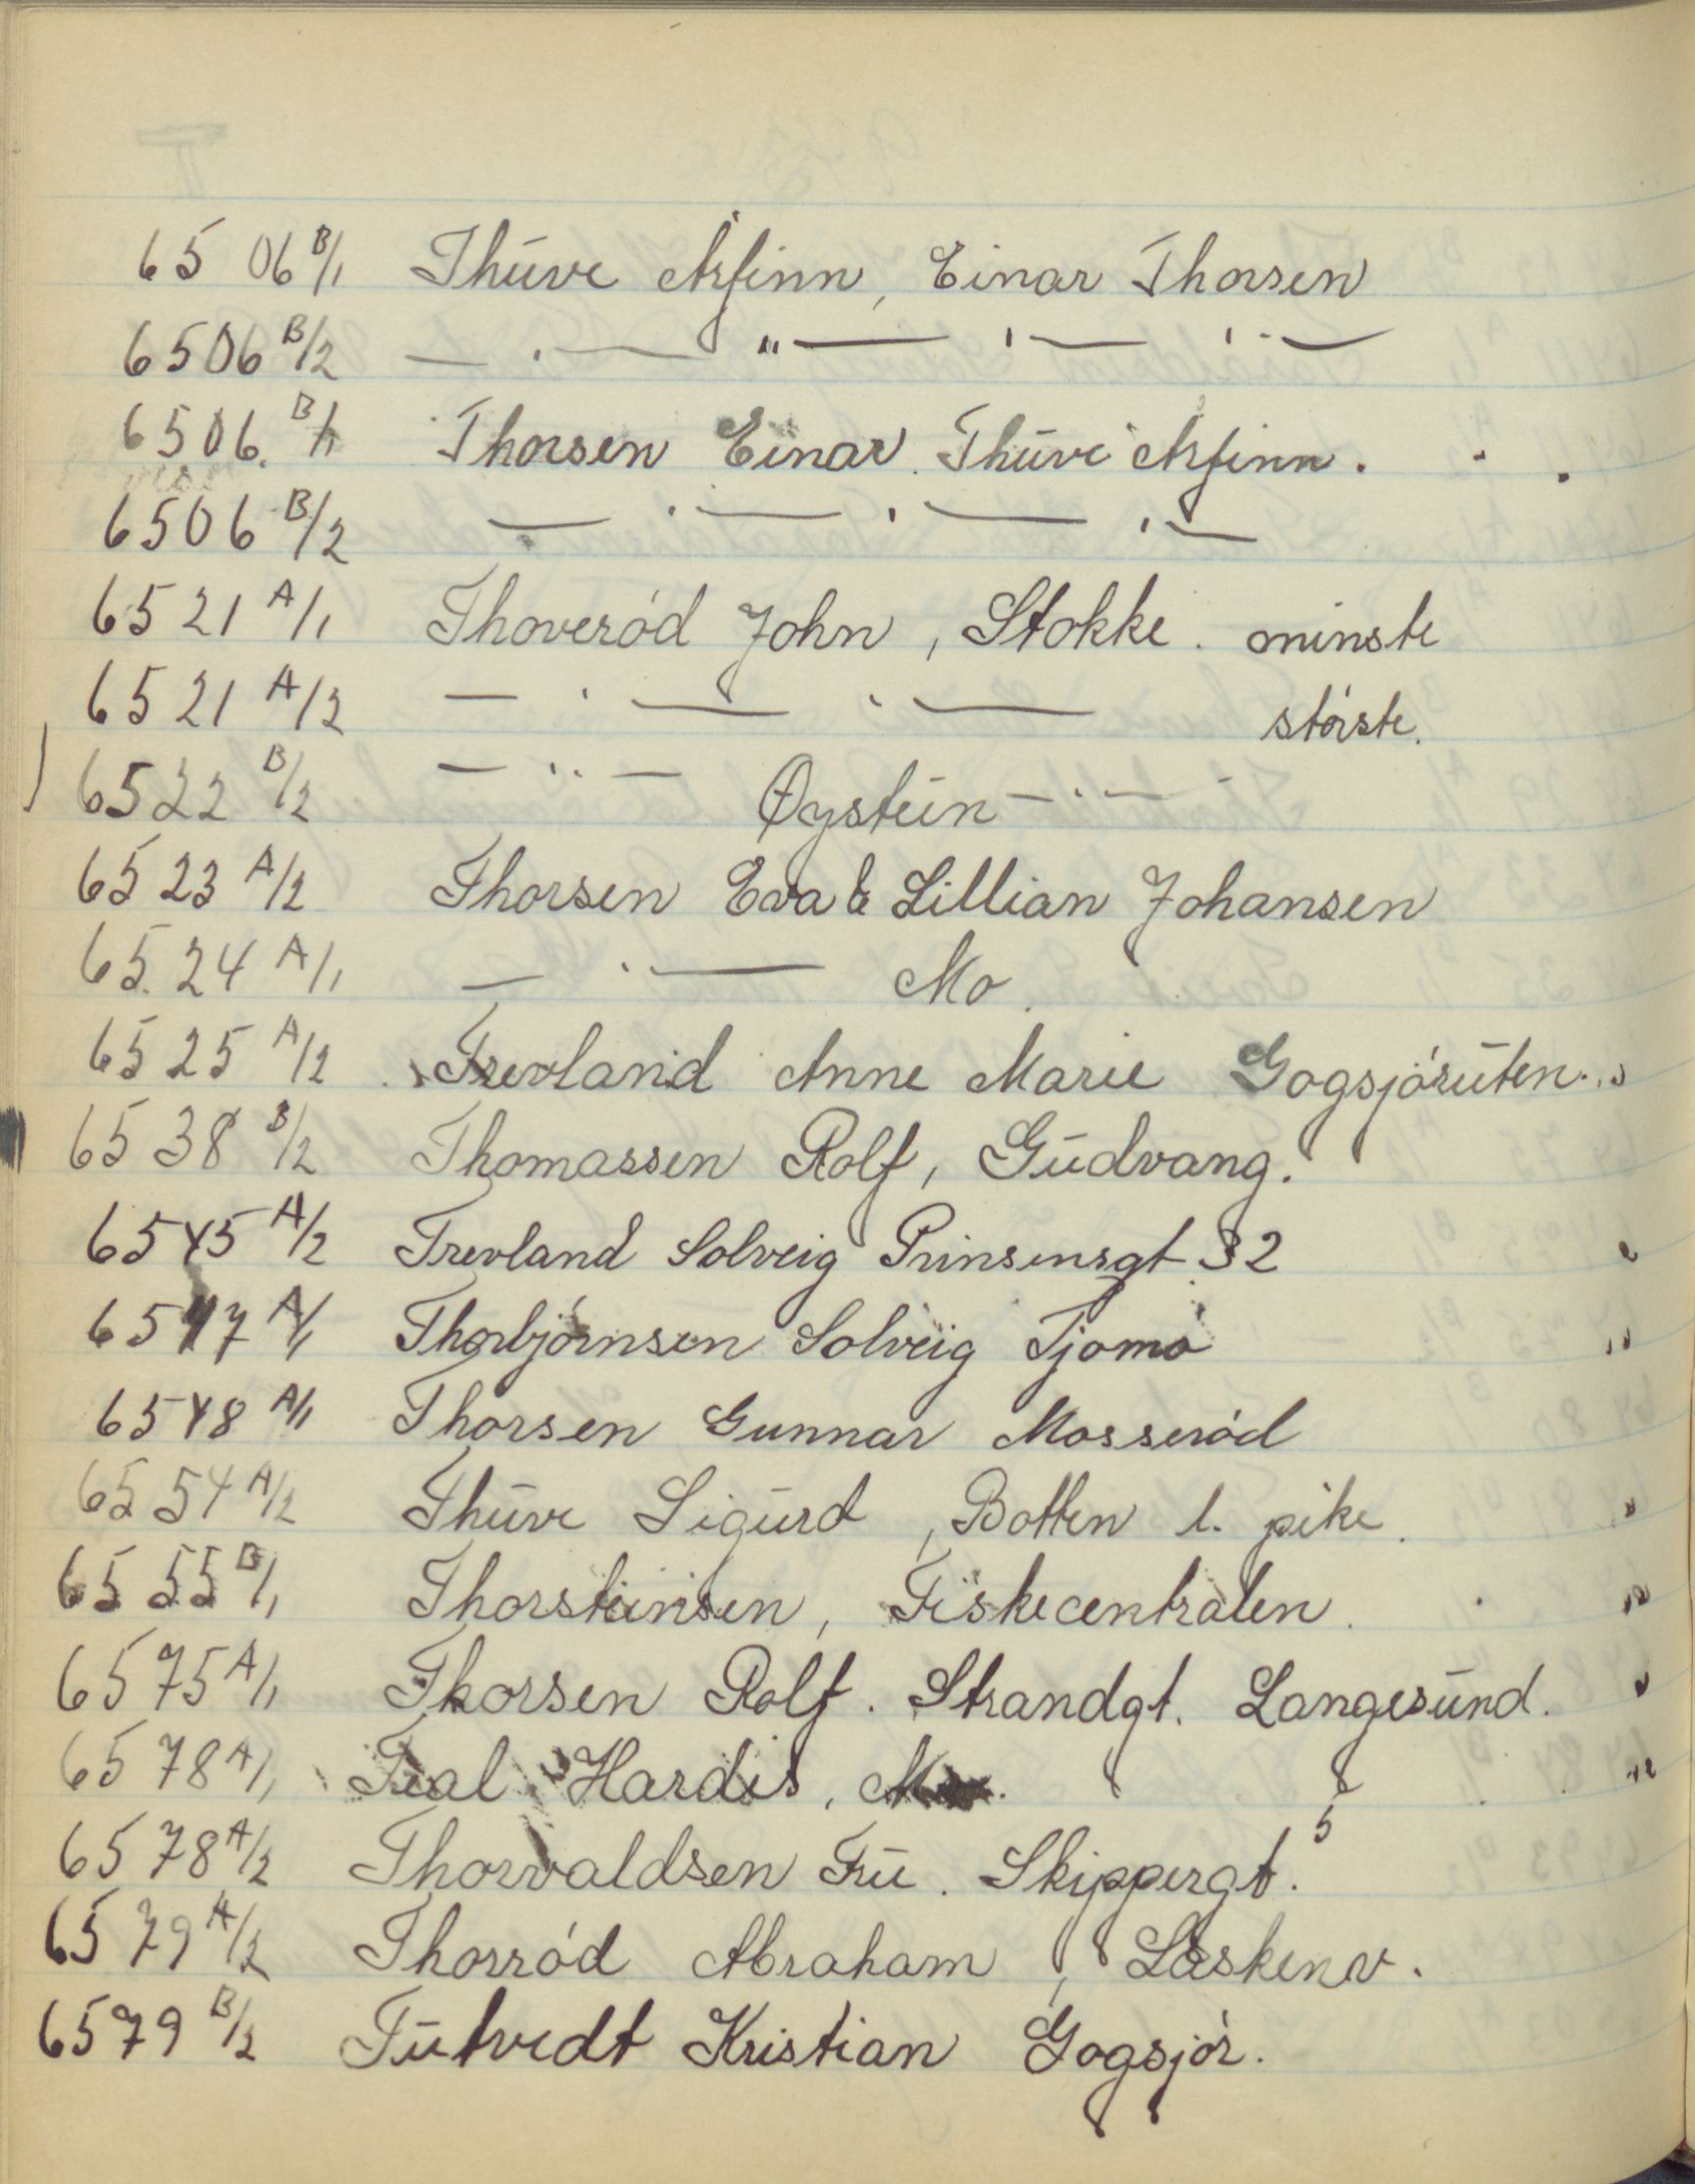 6506 B/1 Thūve Arfinn, Einar Thorsen
6506 B/2 — · — " — ' — ' - —
6506. B/1 Thorsen Einar. Thūve Arfinn.
6506 B/2 — ' — ' — ' —
6521 A/1 Thoverød John, Stokke. minste
6521 A/2 — ' — ' — største.
6522 B/2 — ·· — Øystein — ·· —
6523 A/2 Thorsen Eva & Lillian Johansen
6524 A/1 — ' — Mo.
6525 A/2 Trevland Anne Marie Gogsjørūten.
6538 B/2 Thomassen Rolf, Gūdvang.
6545 A/2 Trevland Solveig Prinsensgt 32
6547 A/1 Thorbjørnsen Solveig Tjømø
6548 A/1 Thorsen Gunnar Mosserød
6554 A/2 Thūve Sigūrd, Botten l. pike.
6555 B/1 Thorsteinsen, Fiskecentralen.
6575 A/1 Thorsen Rolf. Strandgt. Langesūnd.
6578 A/1 Teal Hardis,
6578 A/2 Thorvaldsen Frū. Skippergt. 5
6579 A/2 Thorrød Abraham, Låskenv.
6579 B/2 Tūtvedt Kristian Gogsjør.